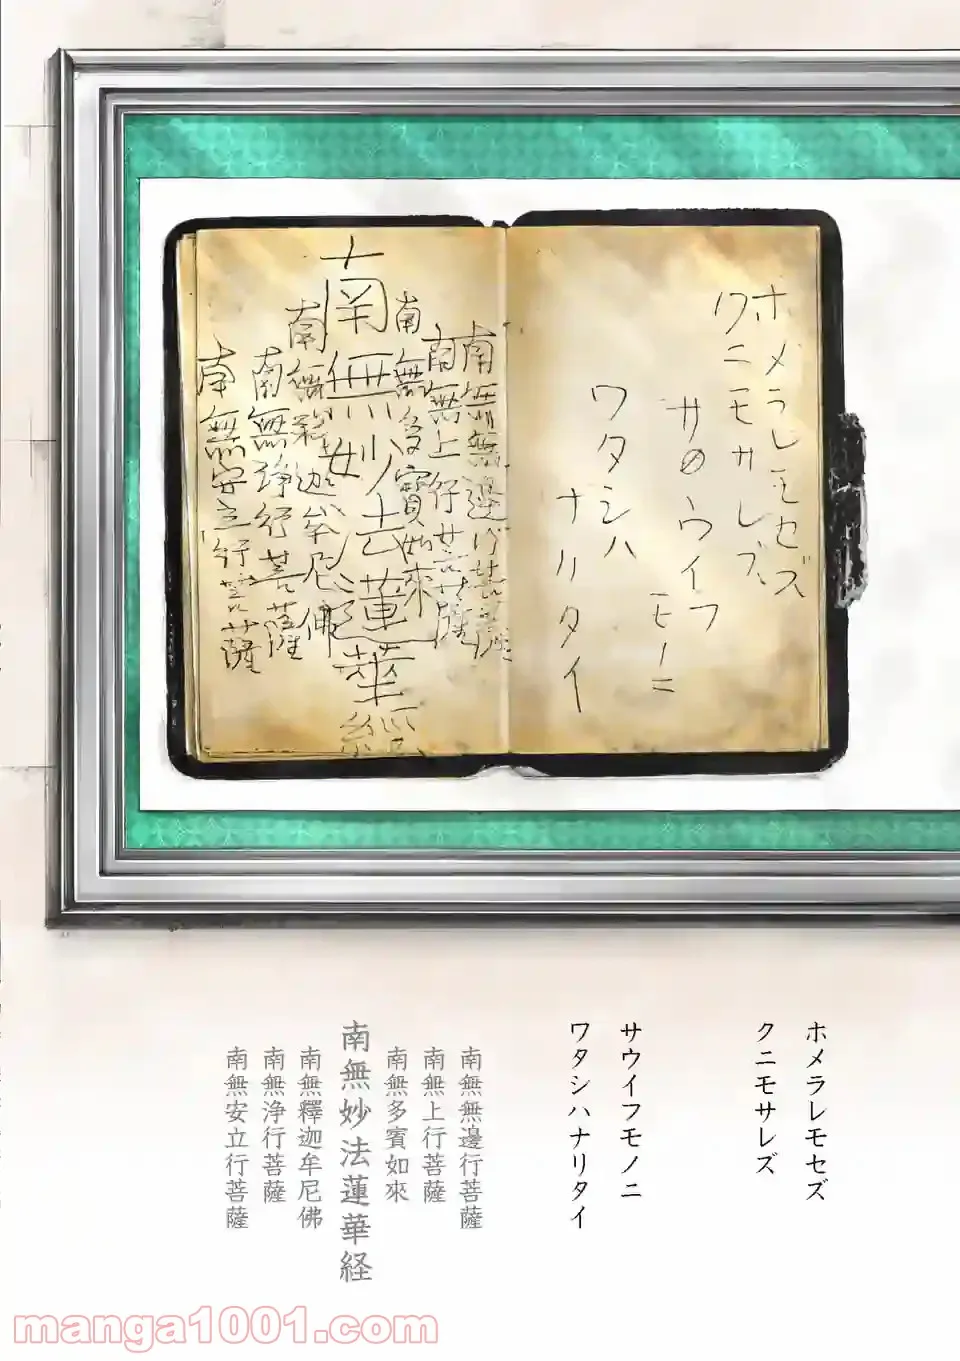 ホメラレモセズ
クニモサレズ
サウイフ
モノニ
ワタシハ
ナリタイ
南無無邊行菩薩
南無上行菩薩
南無多寶如來
南無妙法蓮華經
南無釈迦牟尼佛
南無浄行菩薩
南無安立行菩薩
ホメラレモセズ
クニモサレズ
サウイフモノニ
ワタシハナリタイ
南無無邊行菩薩
南無上行菩薩
南無多賓如來
南無妙法蓮華経
南無釋迦牟尼佛
南無浄行菩薩
南無安立行菩薩
manga1001.com